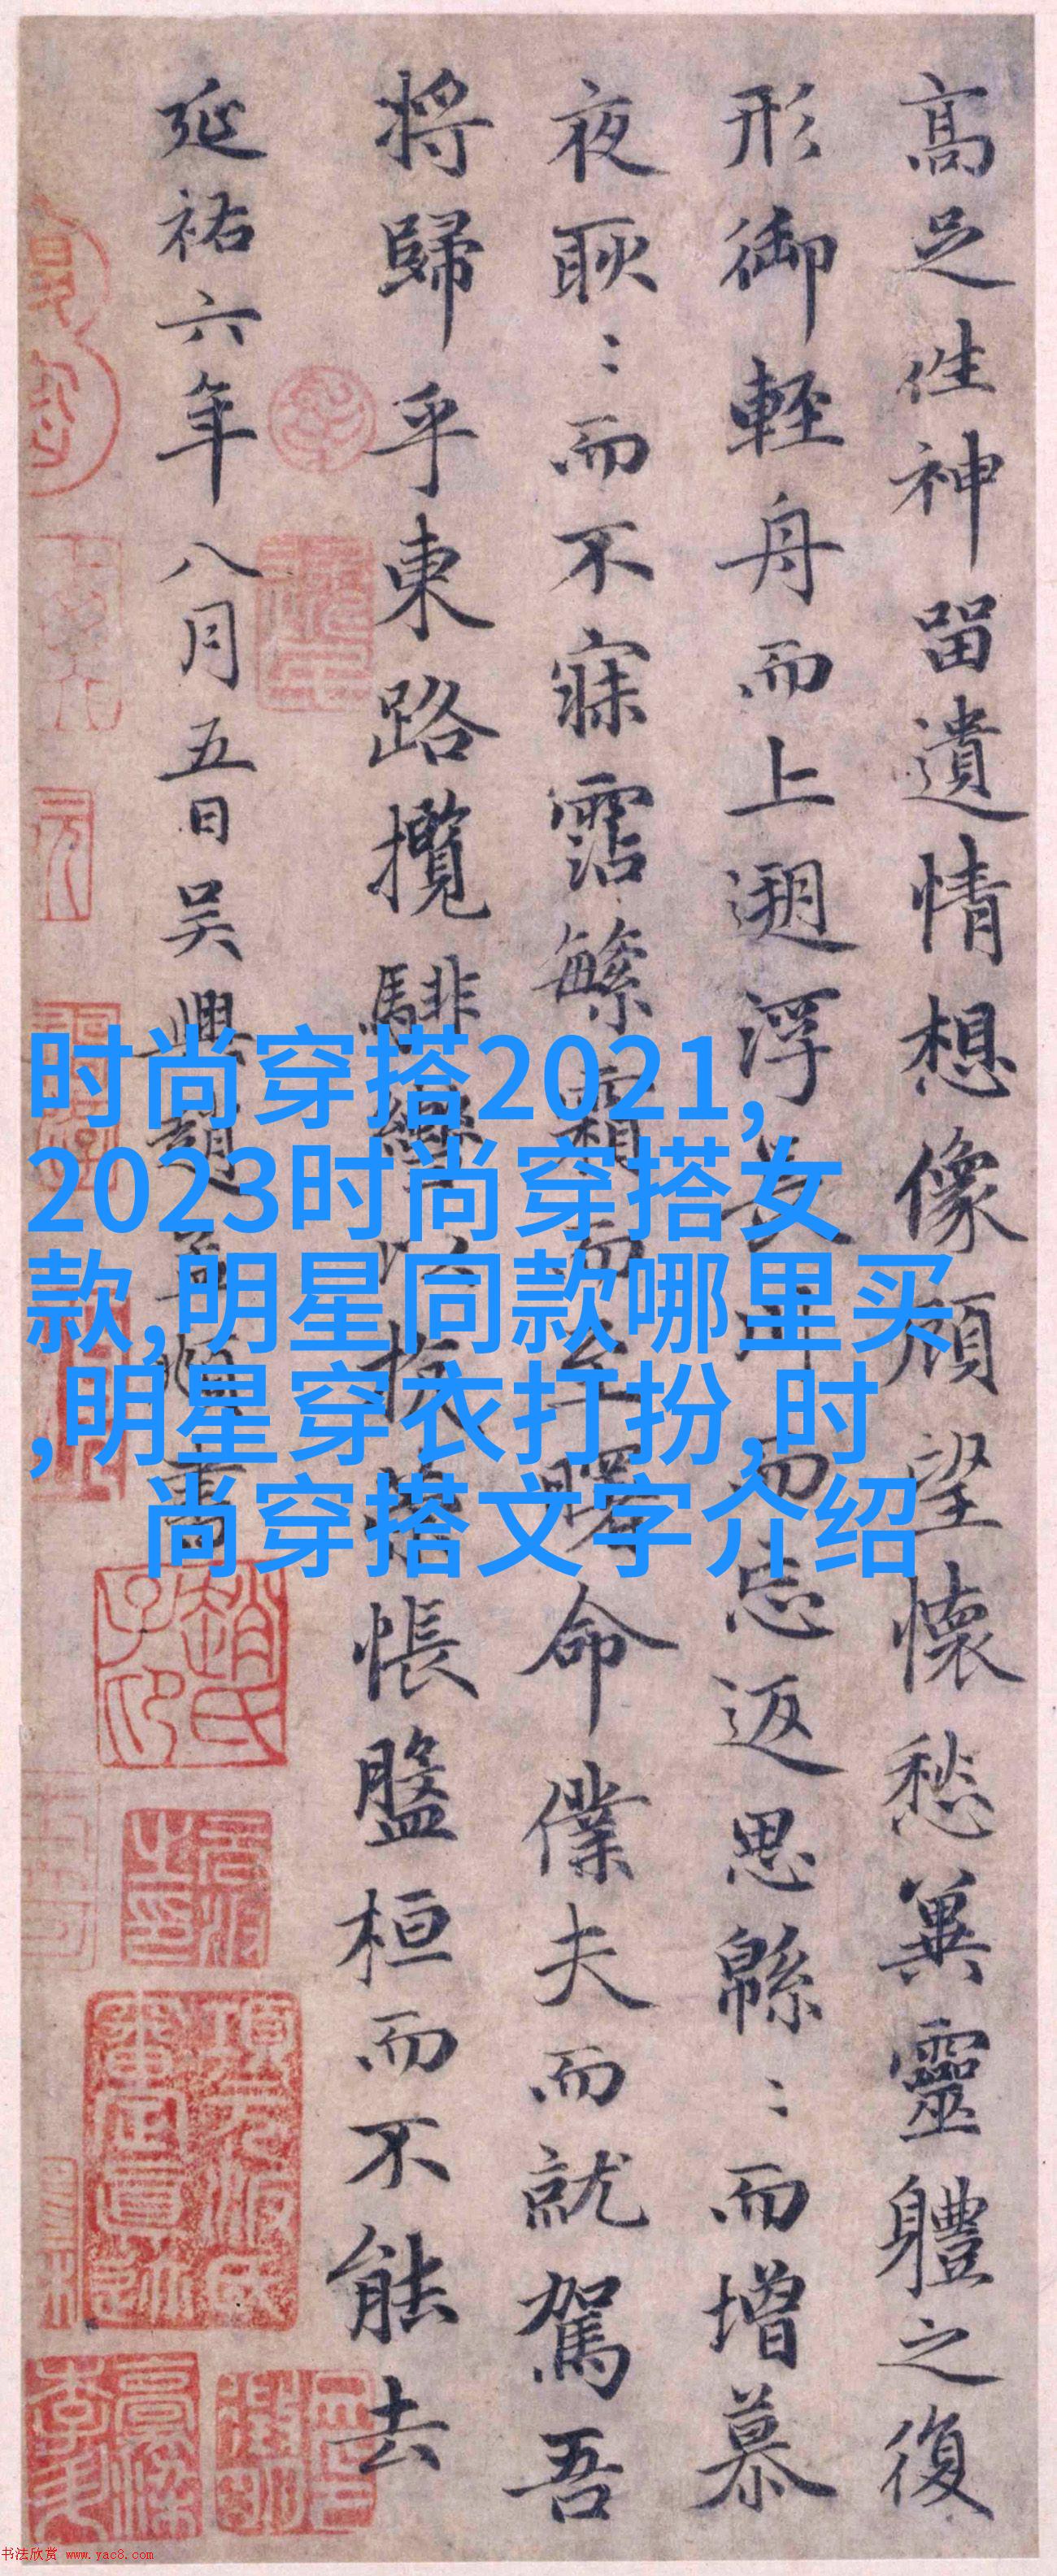 高足往神留遺情想像顧望懷愁冀靈體之復
形御輕舟而上遡浮長川而忘返思緜〻而增慕
夜耿〻而不寐霑繁霜而至曙命僕夫而就駕吾
將歸乎東路攬騑轡以抗策悵盤桓而不能去
延祐六年八月五日吳興趙孟頫書
时尚穿搭2021,
2023时尚穿搭女
款,明星同款哪里买
,明星穿衣打扮,时
尚穿搭文字介绍
书法欣赏 www.yac8.com